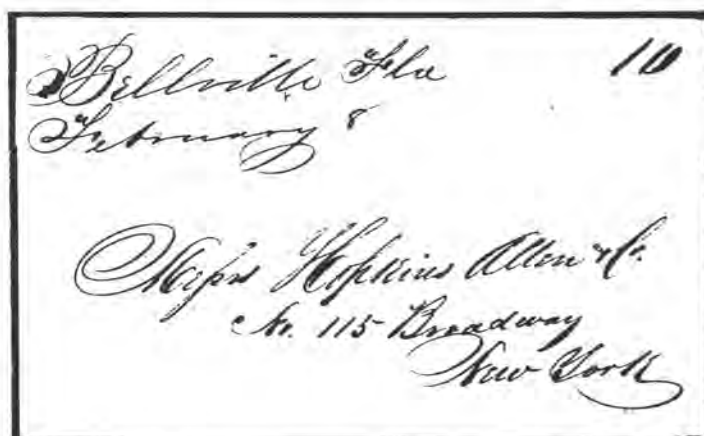 Bellville Fla 10
February 8
Messrs Hopkins Allen & Co.
No. 115 Broadway
New York